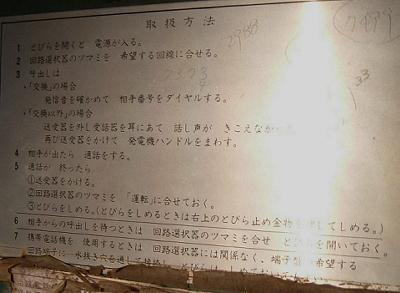 取扱方法
1 とびらを開くと 電源が入る。
2 回路選択器のツマミを 希望する回線に合せる。
3 呼出しは
・「交換」の場合
発信音を確かめて 相手番号をダイヤルする。
・「交換以外」の場合
送受器を外し受話器を耳にあて 話し声が きこえなか
再び送受器をかけて 発電機ハンドルをまわす。
4 相手が出たら 通話をする。
5 通話が 終ったら
①送受器をかける。
②回路選択器のツマミを 「運転」に合せておく。
③とびらをしめる。(とびらをしめるときは右上のとびら止め金物を してしめる。)
6 相手からの呼出しを待つときは 回路選択器のツマミを合せ とびらを開いておく。
7 携帯電話機を 使用するときは 回路選択器には関係なく、端子盤 希望する
回路端子に 水抜き穴を通して接続し